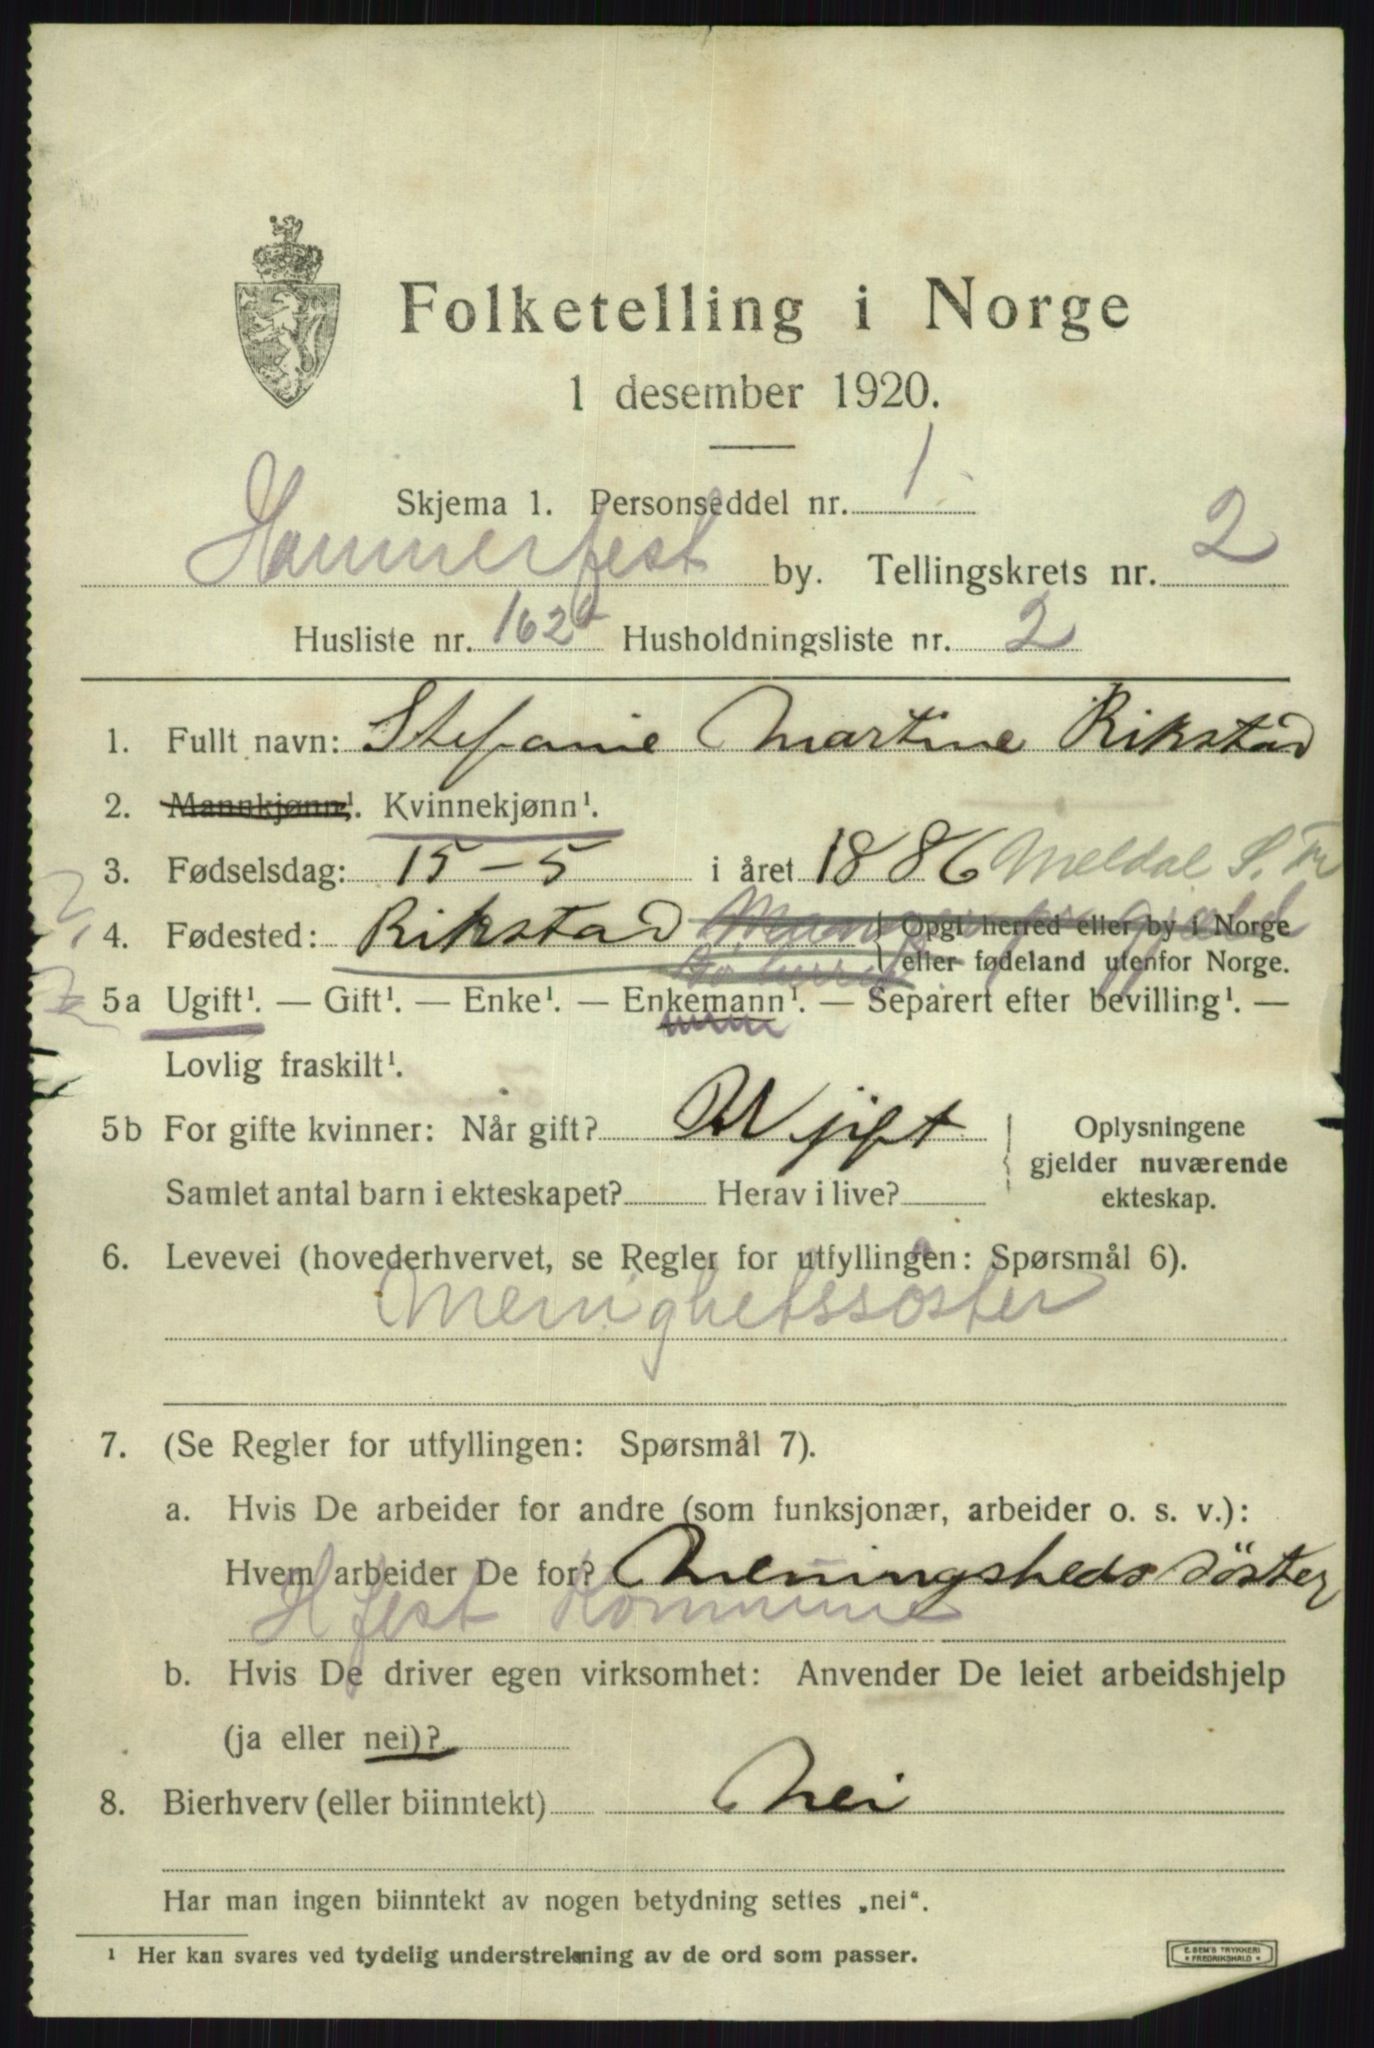 Folketelling i Norge
1 desember 1920.
Skjema 1. Personseddel nr. 1
Hammerfest by. Tellingskrets nr. 2
Husliste nr. 162 Husholdningsliste nr. 2
1. Fullt navn: Stefanie Martine Rikstad
2. Mannkjønn¹. Kvinnekjønn¹.
3. Fødselsdag: 15-5 i året 1886 Meldal S. Tr
4. Fødested: Rikstad Opgi herred eller by i Norge
eller fødeland utenfor Norge.
5a Ugift¹. — Gift¹. — Enke¹. — Enkemann¹. — Separert efter bevilling¹. —
Lovlig fraskilt¹.
5b For gifte kvinner: Når gift? Ugift Oplysningene
gjelder nuværende
Samlet antal barn i ekteskapet? Herav i live? ekteskap.
6. Levevei (hovederhvervet, se Regler for utfyllingen: Spørsmål 6).
Menighetssøster
7. (Se Regler for utfyllingen: Spørsmål 7).
a. Hvis De arbeider for andre (som funksjonær, arbeider o. s. v.):
Hvem arbeider De for? Meningsheds söster
H fest Kommune
b. Hvis De driver egen virksomhet: Anvender De leiet arbeidshjelp
(ja eller nei)?
8. Bierhverv (eller biinntekt) Nei
Har man ingen biinntekt av nogen betydning settes „nei“.
¹ Her kan svares ved tydelig understrekning av de ord som passer.
E. SEM'S TRYKKERI
FREDRIKSHALD